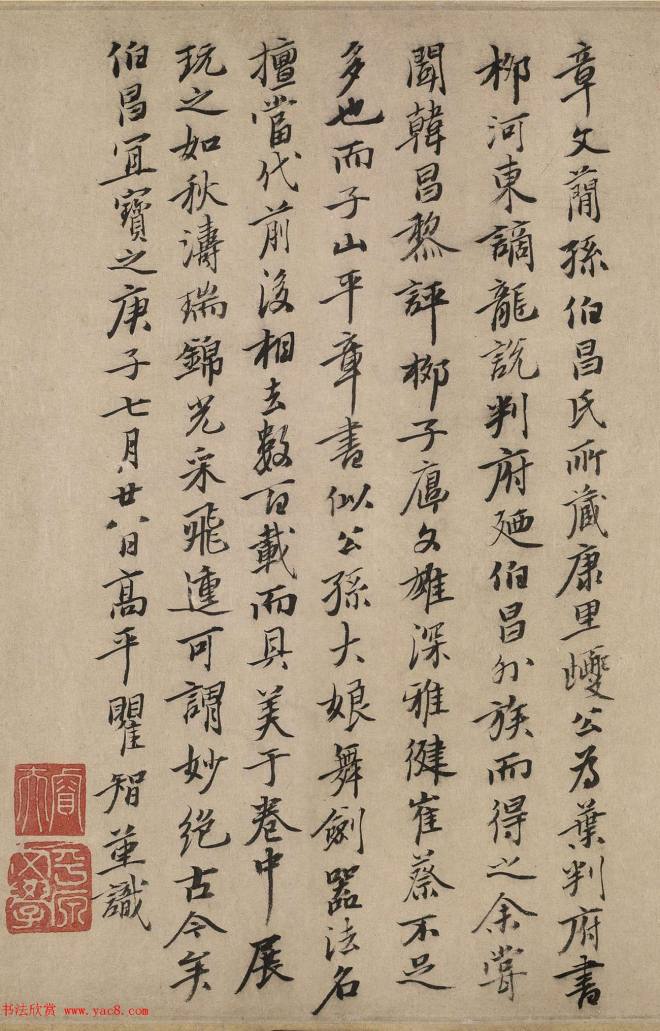 章文蕳孫伯昌氏所藏康里巙公為葉判府書
柳河東謫龍說判府廼伯昌外族而得之余嘗
聞韓昌黎評柳子厚文雄深雅健崔蔡不足
多也而子山平章書似公孫大娘舞劍器法名
擅當代前後相去數百載而具美于卷中展
玩之如秋濤瑞錦光采飛連可謂妙絕古今矣
伯昌宜寶之庚子七月廿八日高平瞿智𦯧識
睿夫
書法欣賞 www.yac8.com